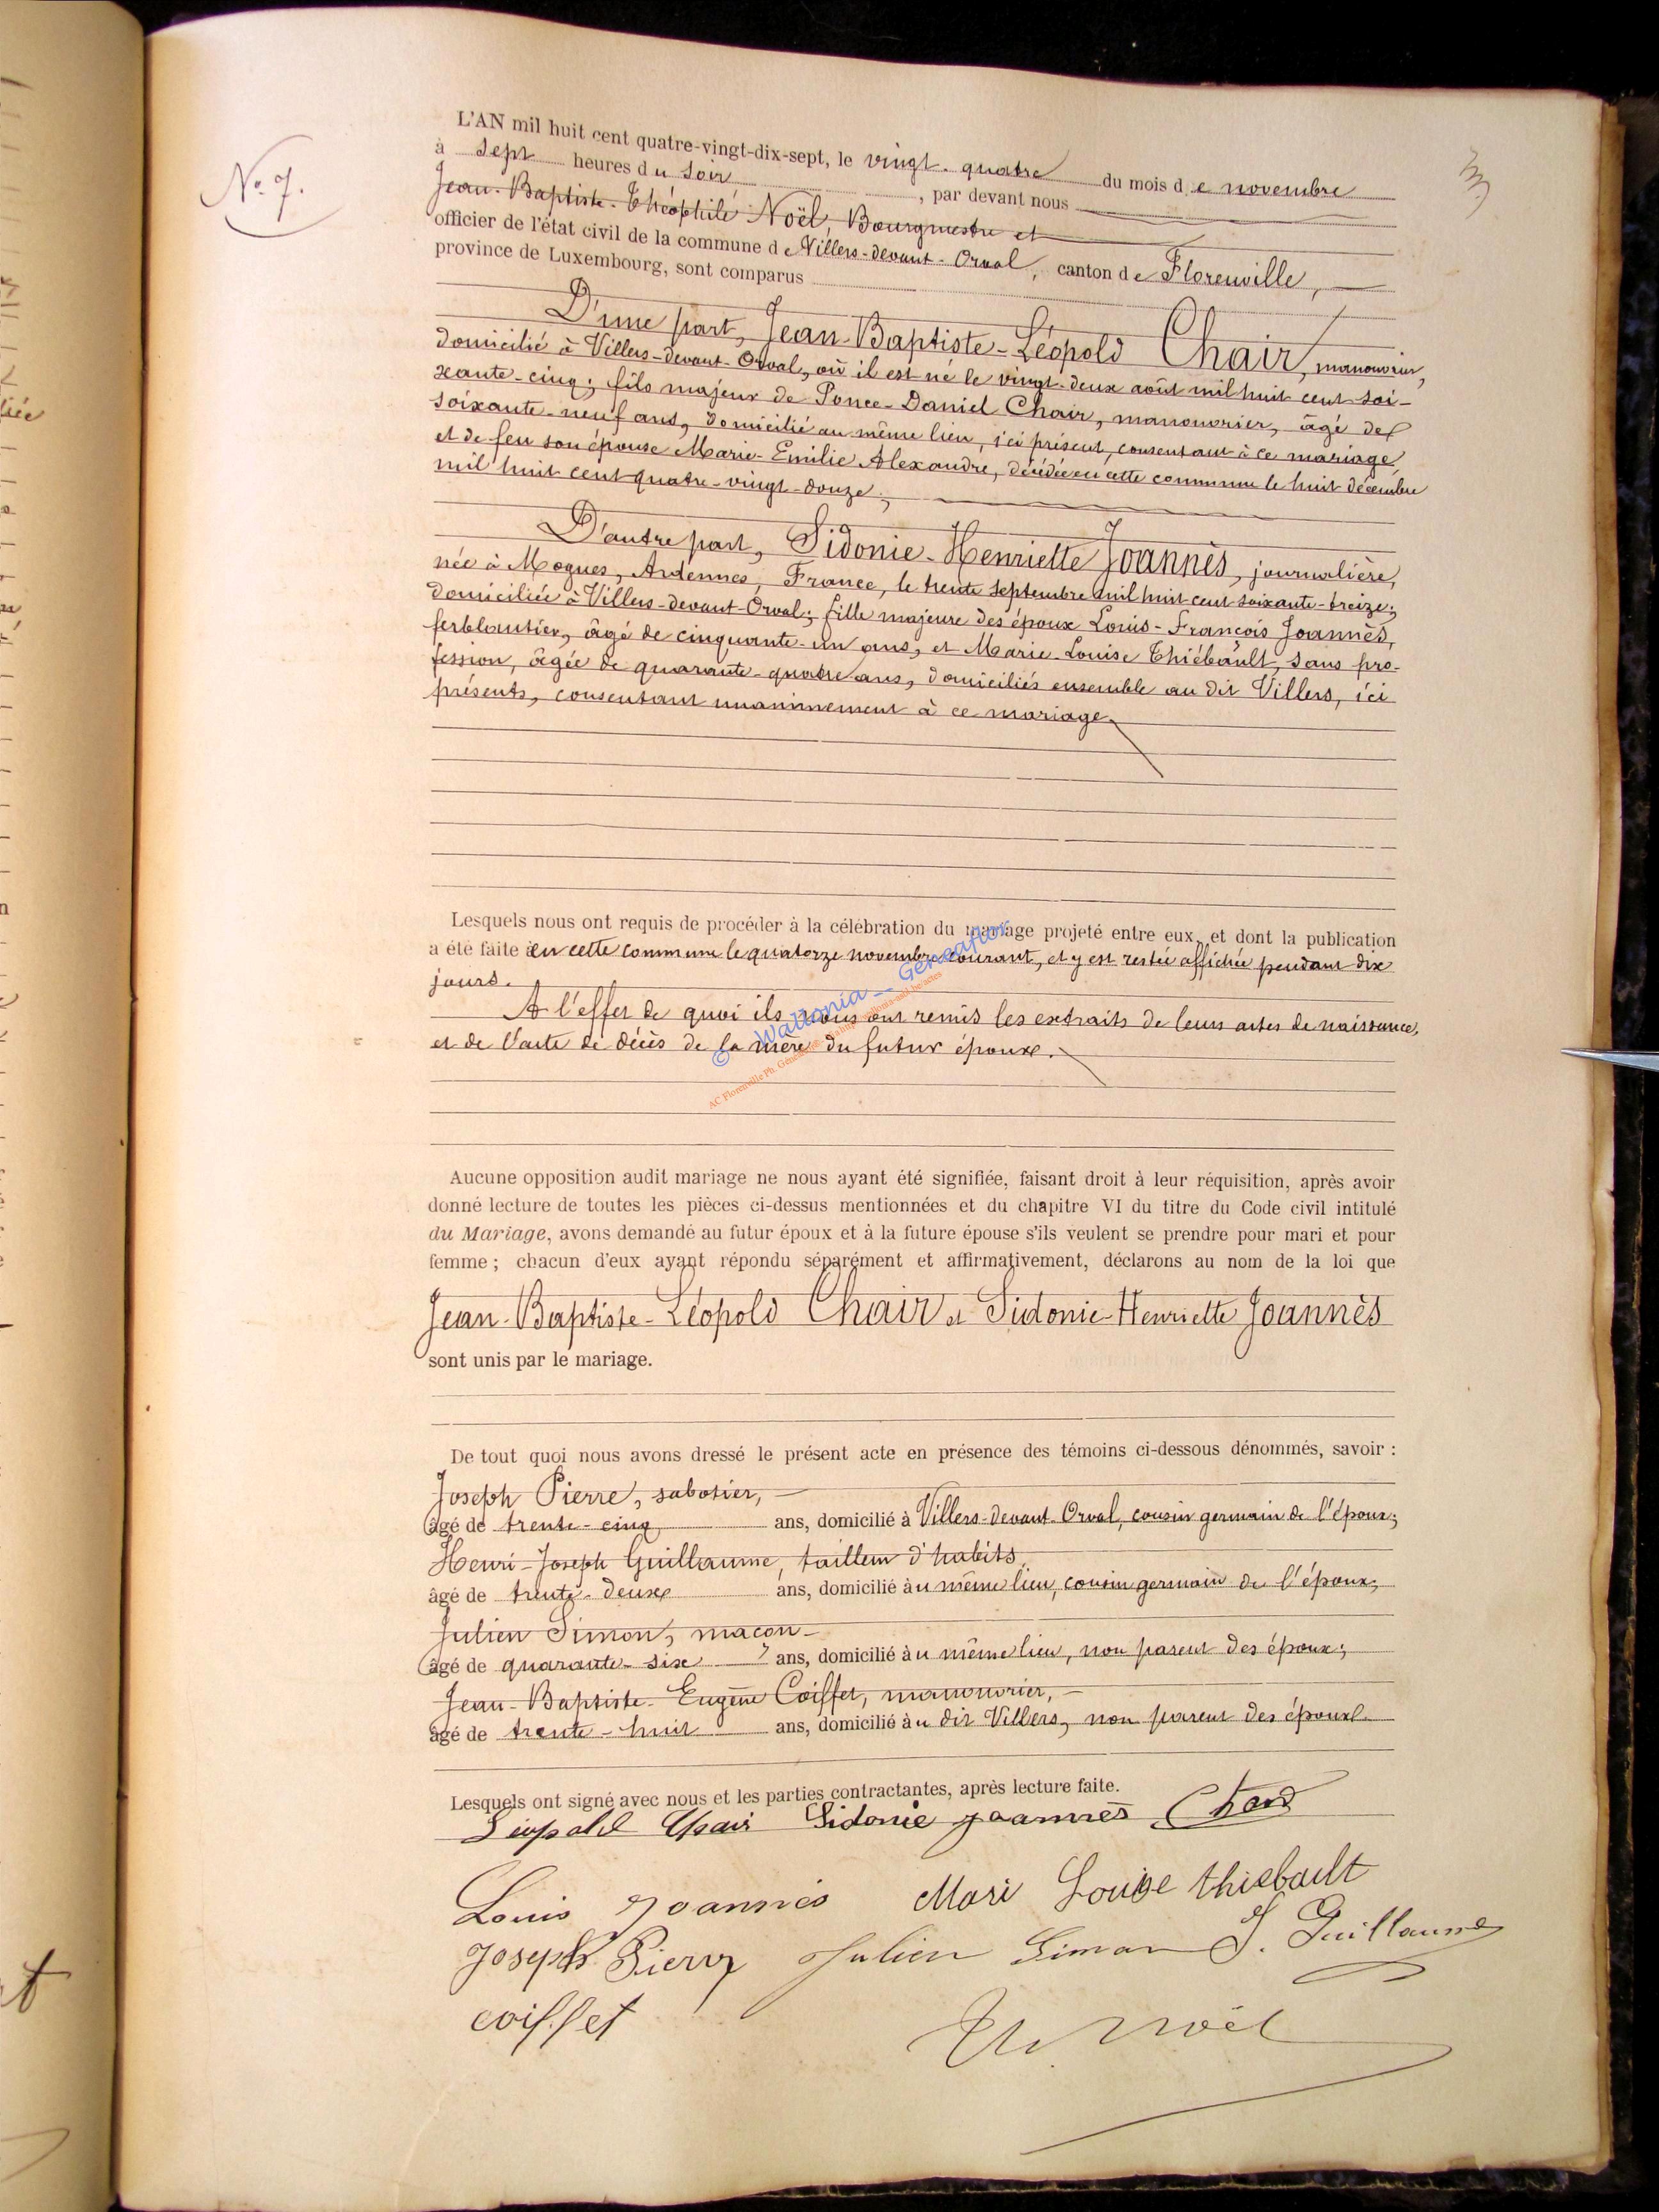 N° 7.
L'AN mil huit cent quatre-vingt-dix-sept, le vingt-quatre du mois de novembre
à sept heures du soir, par devant nous
Jean-Baptiste-Théophile Noël, Bourgmestre et
officier de l'état civil de la commune de Villers-devant-Orval, canton de Florenville,
province de Luxembourg, sont comparus
D'une part, Jean-Baptiste-Léopold Chair, manouvrier,
domicilié à Villers-devant-Orval, où il est né le vingt-deux août mil huit cent soi-
xante-cinq; fils majeur de Ponce-Daniel Chair, manouvrier, âgé de
soixante-neuf ans, domicilié au même lieu, ici présent, consentant à ce mariage,
et de feu son épouse Marie-Emilie Alexandre, décédée en cette commune le huit décembre
mil huit cent quatre-vingt-douze;
D'autre part, Sidonie-Henriette Joannès, journalière,
née à Mogues, Ardennes, France, le trente septembre mil huit cent soixante-treize;
domiciliée à Villers-devant-Orval; fille majeure des époux Louis-François Joannès,
ferblantier, âgé de cinquante-un ans, et Marie-Louise Thiébault, sans pro-
fession, âgée de quarante-quatre ans, domiciliés ensemble au dit Villers, ici
présents, consentant unanimement à ce mariage.
Lesquels nous ont requis de procéder à la célébration du mariage projeté entre eux, et dont la publication
a été faite en cette commune le quatorze novembre courant, et y est restée affichée pendant dix
jours.
A l'effet de quoi ils nous ont remis les extraits de leurs actes de naissance,
et de l'acte de décès de la mère du futur époux.
© Wallonia __ Geneaflor
AC Florenville Ph. Généalogie
Aucune opposition audit mariage ne nous ayant été signifiée, faisant droit à leur réquisition, après avoir
donné lecture de toutes les pièces ci-dessus mentionnées et du chapitre VI du titre du Code civil intitulé
du Mariage, avons demandé au futur époux et à la future épouse s'ils veulent se prendre pour mari et pour
femme ; chacun d'eux ayant répondu séparément et affirmativement, déclarons au nom de la loi que
Jean-Baptiste-Léopold Chair et Sidonie-Henriette Joannès
sont unis par le mariage.
De tout quoi nous avons dressé le présent acte en présence des témoins ci-dessous dénommés, savoir :
Joseph Pierre, sabotier,
âgé de trente-cinq ans, domicilié à Villers-devant-Orval, cousin germain de l'époux;
Henri-Joseph Guillaume, tailleur d'habits,
âgé de trente-deux ans, domicilié au même lieu, cousin germain de l'époux;
Julien Simon, maçon
âgé de quarante-six ans, domicilié au même lieu, non parent des époux;
Jean-Baptiste-Eugène Coiffet, manouvrier,
âgé de trente-huit ans, domicilié au dit Villers, non parent des époux.
Lesquels ont signé avec nous et les parties contractantes, après lecture faite.
Léopold Chair Sidonie Joannès Chair
Louis Joannès Mari Louise thiebault
Joseph Pierre Julien Simon J. Guillaume
coiffet Th. Noël